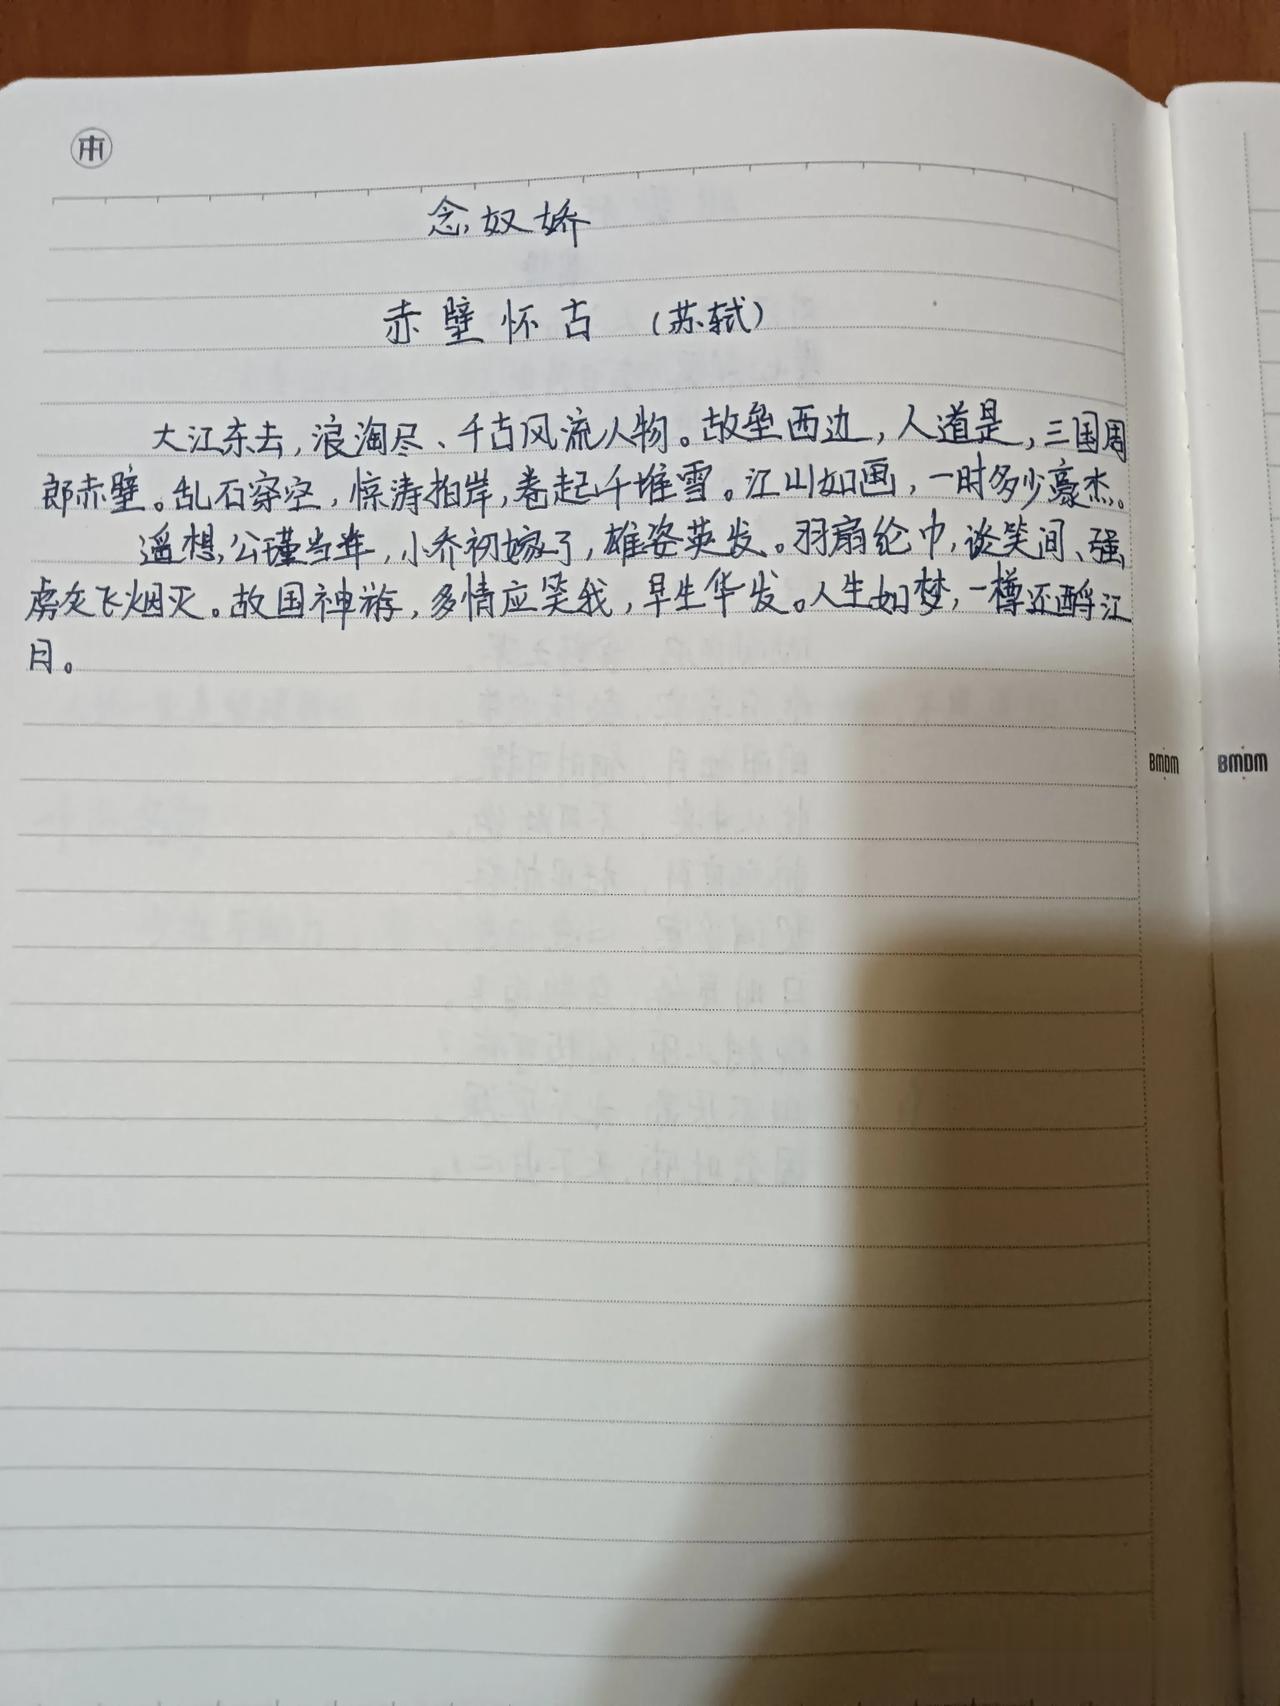 念奴娇
赤壁怀古 （苏轼）
大江东去，浪淘尽、千古风流人物。故垒西边，人道是，三国周
郎赤壁。乱石穿空，惊涛拍岸，卷起千堆雪。江山如画，一时多少豪杰。
遥想，公瑾当年，小乔初嫁了，雄姿英发。羽扇纶巾，谈笑间、强
虏灰飞烟灭。故国神游，多情应笑我，早生华发。人生如梦，一樽还酹江
月。
BMDM
BMDM